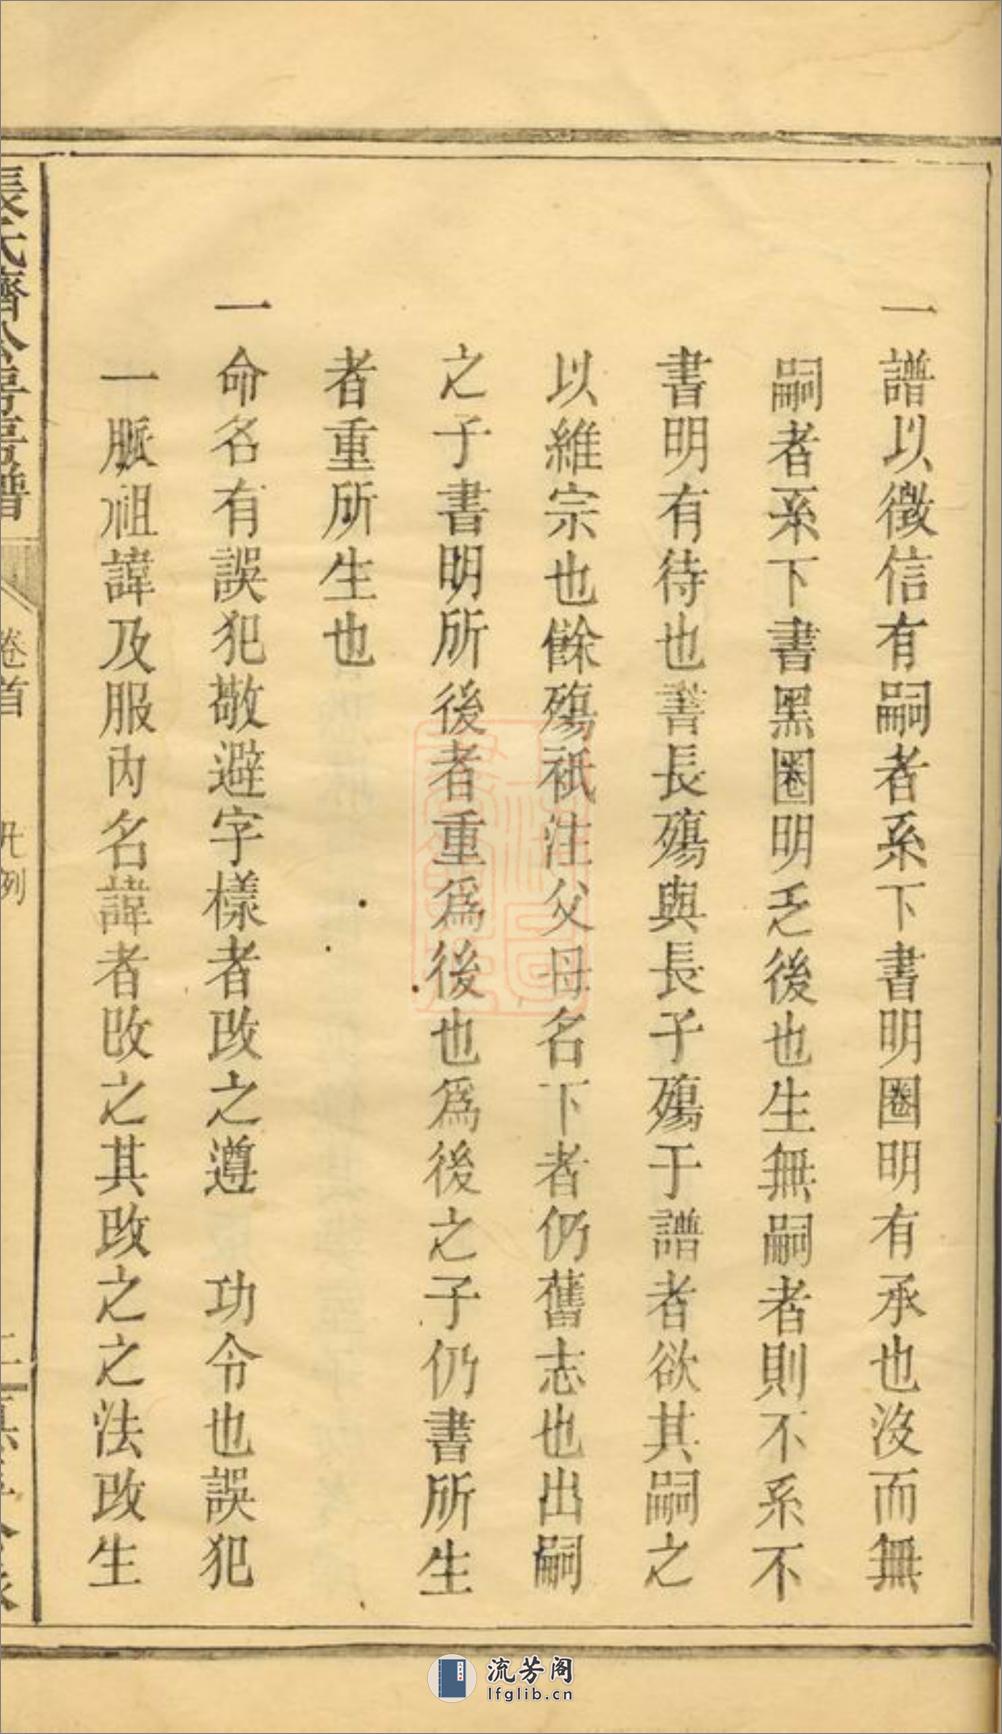 一譜以徵信有嗣者系下書明圈明有承也沒而無
嗣者系下書黑圈明乏後也生無嗣者則不系不
書明有待也書長殤與長子殤于譜者欲其嗣之
以維宗也餘殤祇注父母名下者仍舊志也出嗣
之子書明所後者重為後也為後之子仍書所生
者重所生也
一命名有誤犯敬避字樣者改之遵　功令也誤犯
一脈祖諱及服內名諱者改之其改之之法改生
張氏濟公房譜
卷首
凡例
流芳阁
lfglib.cn